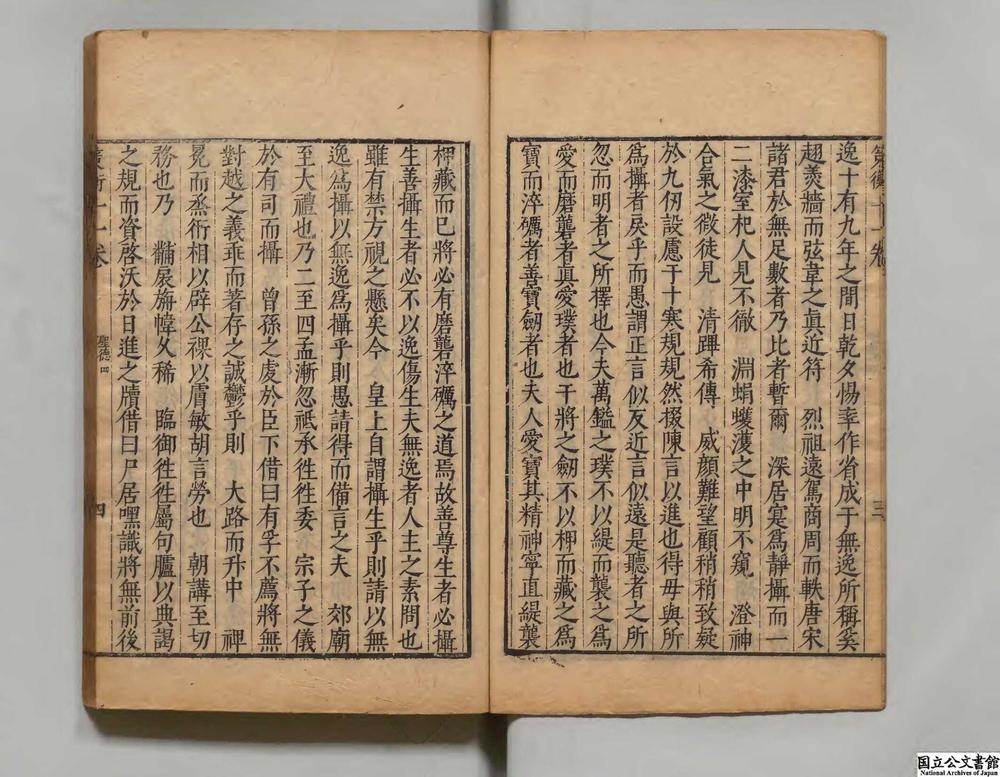 策衡 十一卷
三
逸十有九年之間日乾夕惕率作省成于無逸所稱奚
趐羮牆而弦韋之眞近符 烈祖遠駕商周而軼唐宋
諸君於無足數者乃比者暫爾 深居寔爲靜攝而一
二漆室杞人見不徹 淵蜎蠖濩之中明不窺 澄神
合氣之微徒見 清蹕希傳 威顔難望顧稍稍致疑
於九仞設慮于十寒規規然掇陳言以進也得毋與所
爲攝者戾乎而愚謂正言似反近言似遠是聽者之所
忽而明者之所擇也今夫萬鑑之璞不以緹而襲之爲
愛而磨礱者眞愛璞者也干將之劒不以柙而藏之爲
寶而淬礪者善寶劒者也夫人愛寶其精神寧直緹襲
柙藏而已將必有磨礱淬礪之道焉故善尊生者必攝
生善攝生者必不以逸傷生夫無逸者人主之素問也
雖有禁方視之懸矣今 皇上自謂攝生乎則請以無
逸爲攝以無逸爲攝乎則愚請得而備言之夫 郊廟
至大禮也乃二至四孟漸忽祇承徃徃委 宗子之儀
於有司而攝 曾孫之䖍於臣下借曰有孚不薦將無
對越之義乖而著存之誠鬱乎則 大路而升中 禆
冕而烝衎相以辟公祼以膚敏胡言勞也 朝講至切
務也乃 黼扆旃幃乆稀 臨御徃徃屬句臚以典謁
之規而資啓沃於日進之牘借曰尸居嘿識將無前後
策衡十一卷
聖德四
四
国立公文書館
National Archives of Japan